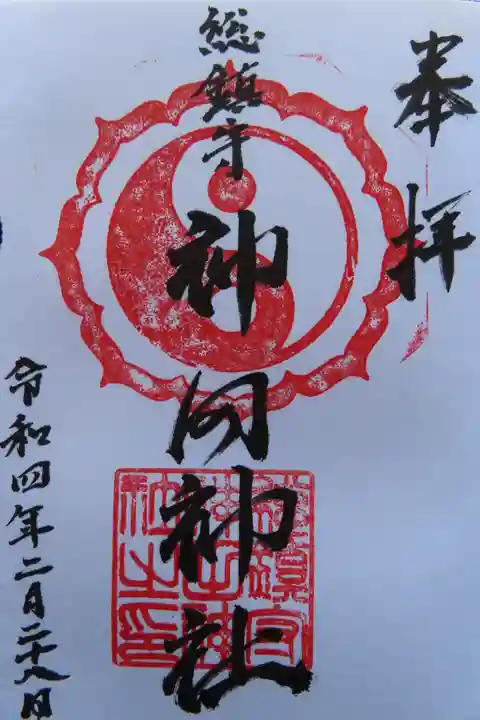 奉拝
総鎮守
神社
令和四年二月二十八日